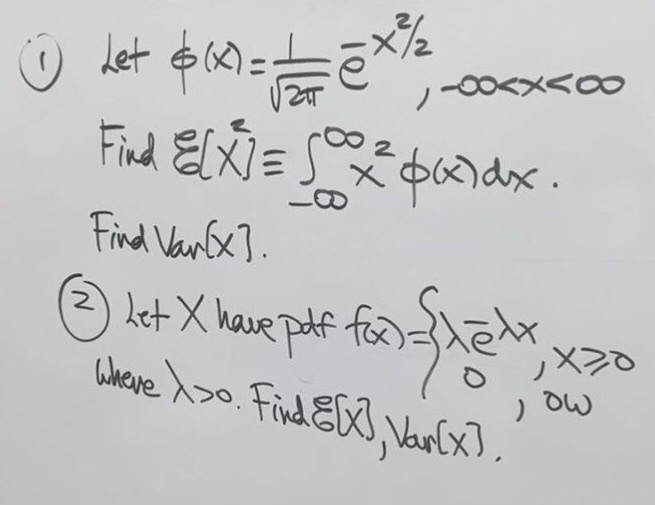 ① Let ϕ(x) = 1/√2π e^-x²/2 , -∞<x<∞
Find ℰ[X²] ≡ ∫_-∞^∞ x² ϕ(x)dx.
Find Var[X].
② Let X have pdf f(x) = { λe^-λx , x≥0
0 , ow
where λ>0. Find ℰ[X], Var[X].